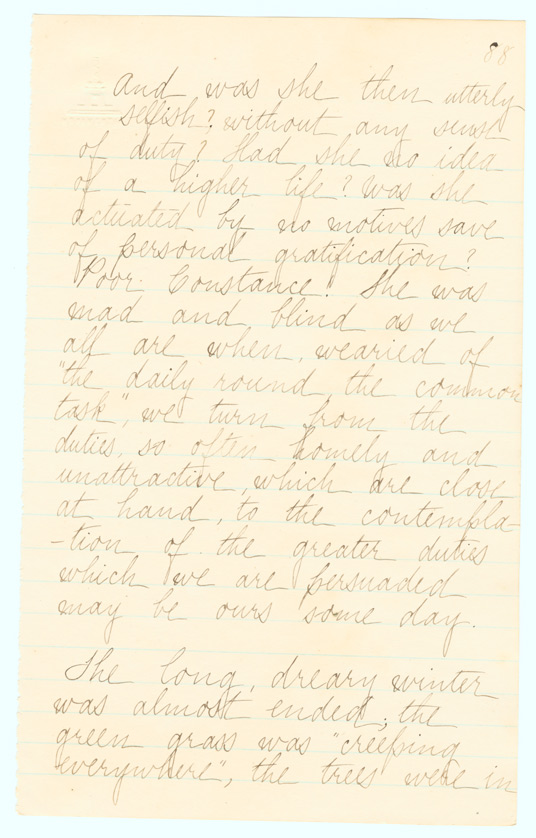 88
and was she then utterly
selfish? without any sense
of duty? Had she no idea
of a higher life? Was she
actuated by no motives save
of personal gratification?
Poor Constance! She was
mad and blind as we
all are when, wearied of
"the daily round the common
task", we turn from the
duties, so often homely and
unattractive, which are close
at hand, to the contempla-
-tion of the greater duties
which we are persuaded
may be ours some day.
The long, dreary winter
was almost ended, the
green grass was "creeping
everywhere", the trees were in